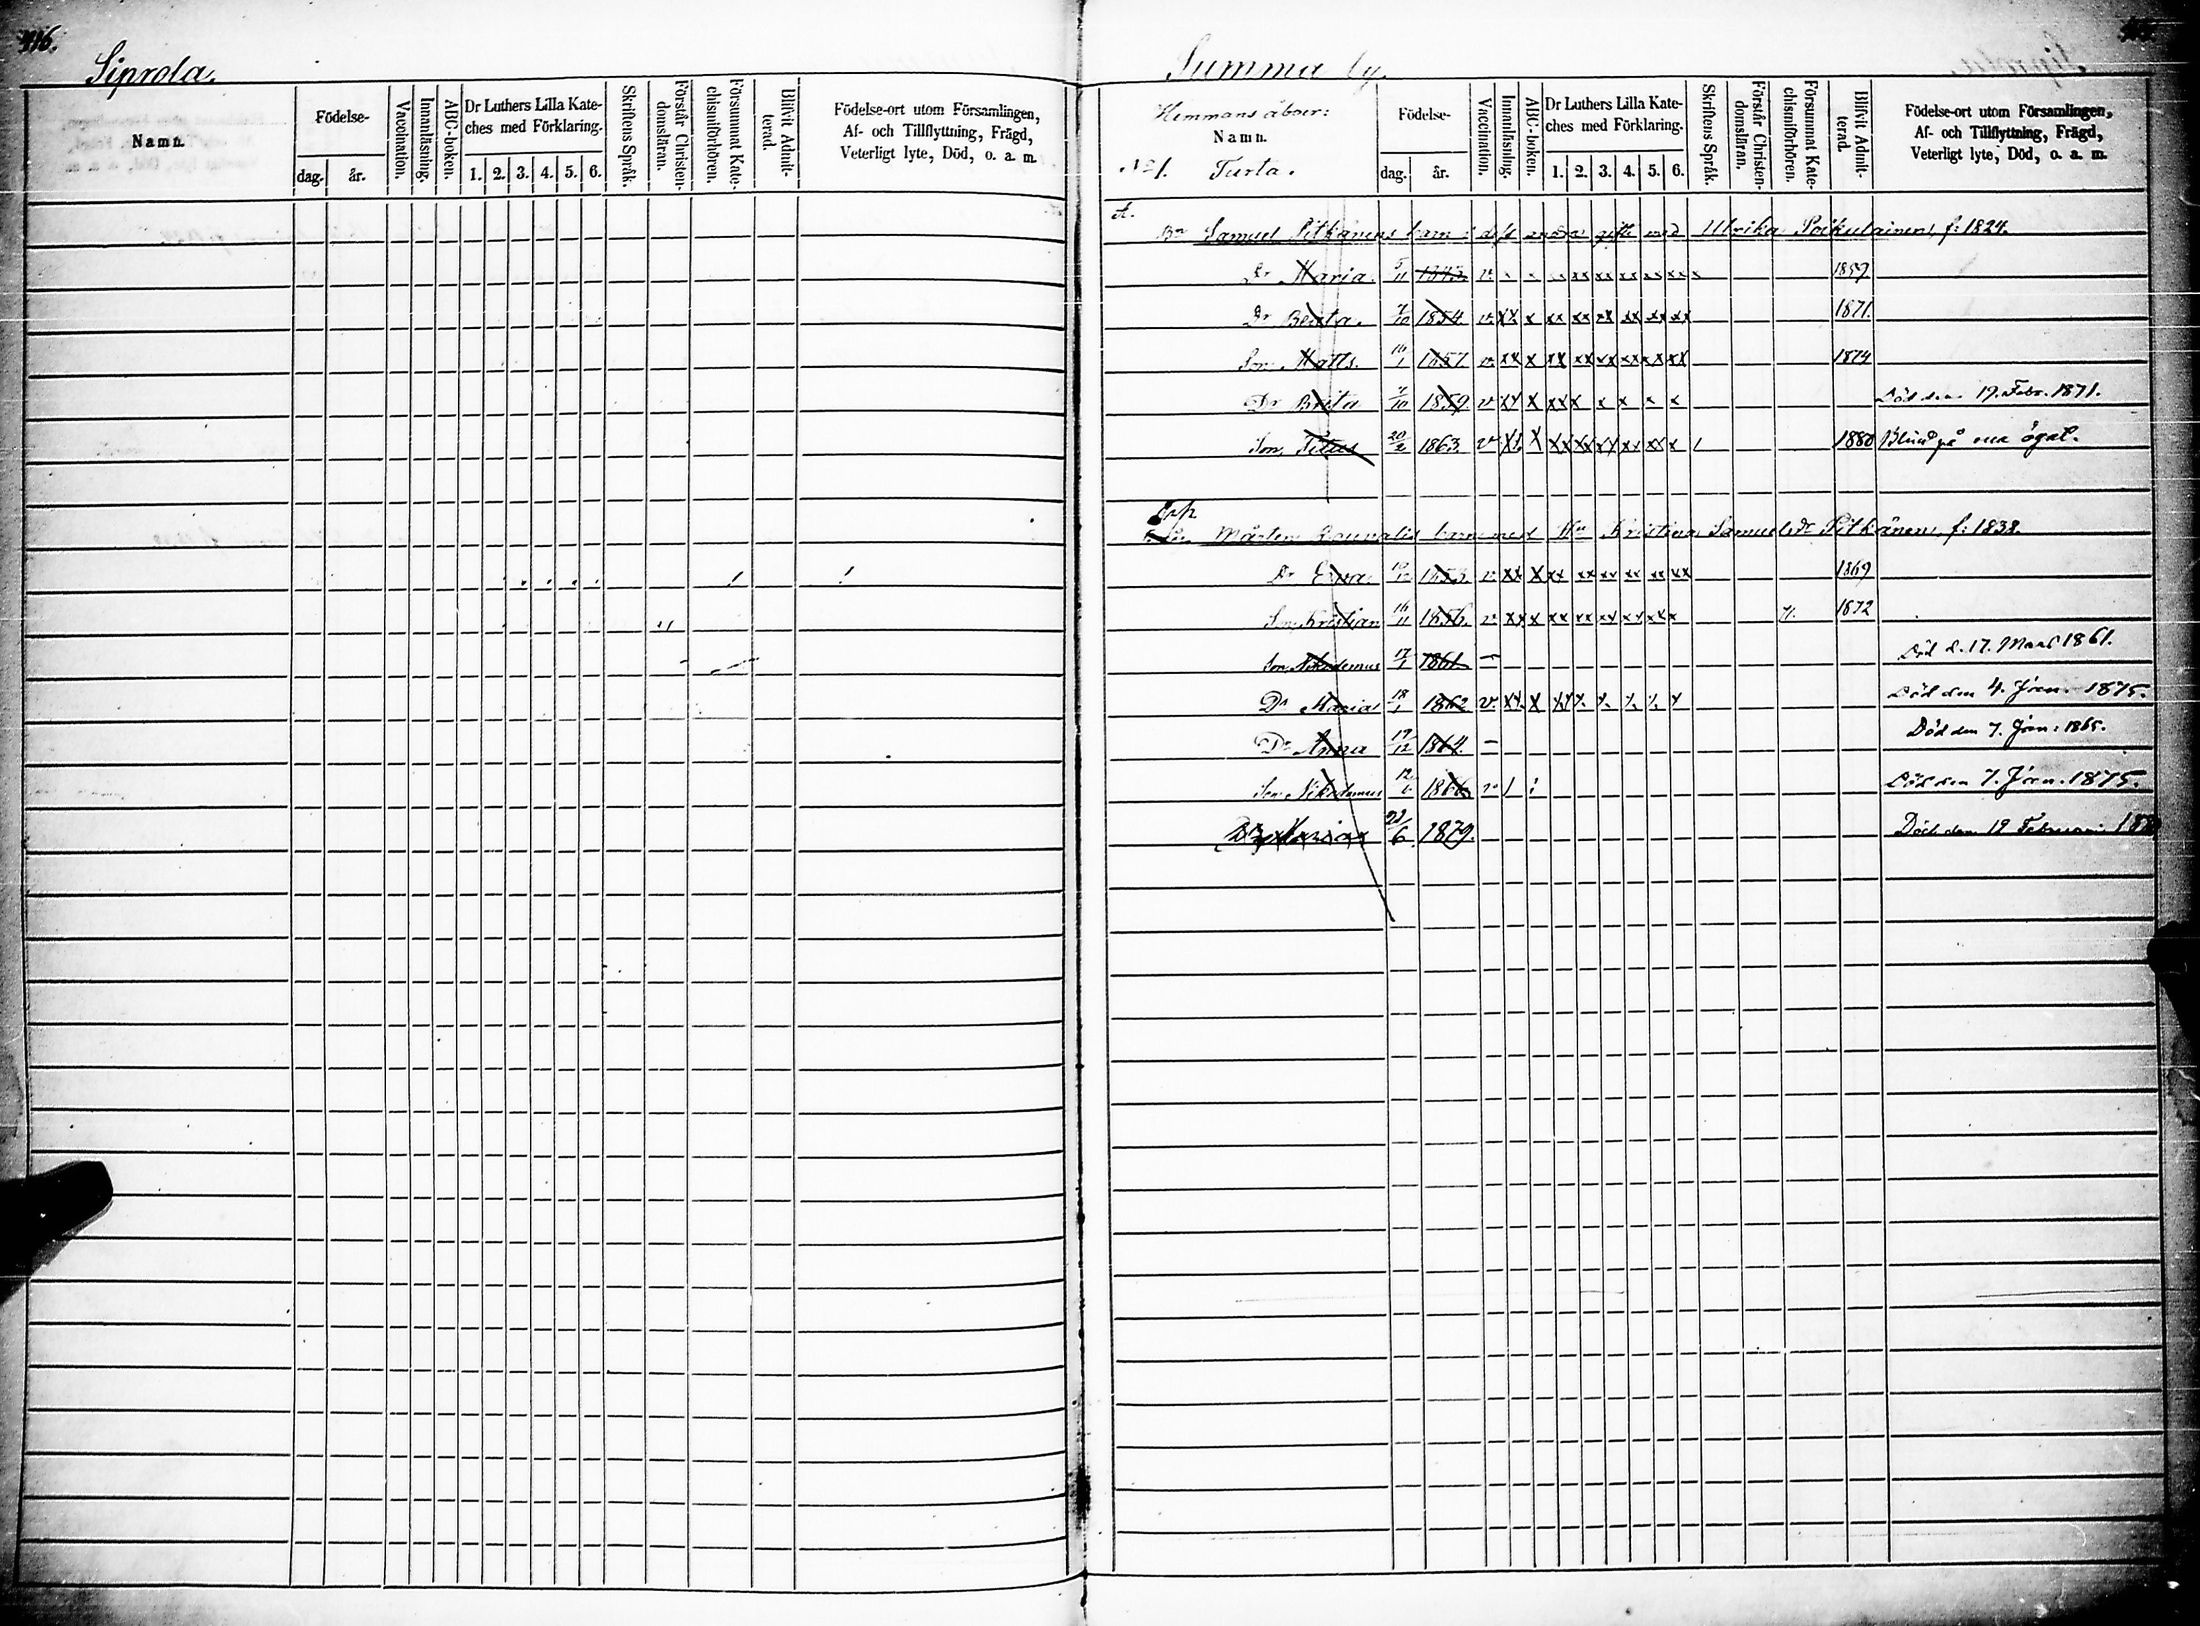 416.
Siprola.
Namn.
Födelse-
dag.
år.
Vaccination.
Innanläsning.
ABC-boken.
Dr Luthers Lilla Kate-
ches med Förklaring.
1. 2. 3. 4. 5. 6.
Skriftens Språk.
Förstår Christen-
domsläran.
Försummat Kate-
chismiförhören.
Blifvit Admit-
terad.
Födelse-ort utom Församlingen,
Af- och Tillflyttning, Frägd,
Veterligt lyte, Död, o. a. m.
Summa by.
Hemmansåboer:
Namn.
No 1. Turta.
Födelse-
dag.
år.
Vaccination.
Innanläsning.
ABC-boken.
Dr Luthers Lilla Kate-
ches med Förklaring.
1. 2. 3. 4. 5. 6.
Skriftens Språk.
Förstår Christen-
domsläran.
Försummat Kate-
chismiförhören.
Blifvit Admit-
terad.
Födelse-ort utom Församlingen,
Af- och Tillflyttning, Frägd,
Veterligt lyte, Död, o. a. m.
A.
Bn Samuel Pitkänens barn gifte med Ulrika f: 1824.
Dr Maria. 5/11 v. 1859
Dr Beata. 7/10 1854. v. xx x xx xx xx xx xx xx 1871.
Son Matts. 16/1 1857. v. xx x xx xx xx xx xx xx 1874
Dr Brita 7/10 1859 v xx x xxx x x x x Död den 19. Febr. 1871.
Son, 20/2 1863. v xx x xx xx xx xx xx x / 1880 Blind på ena ögat.
Mårten barn med Hu Kristina Samuelsdr Pitkänen, f: 1838.
Dr Ewa 1853 v xx x xx xx xx xx xx xx 1869
Son, Kristian 16/11 1856. v xx x xx xx xx xx xx x 1872
Son Nikodemus 17/1 1861 – Död d. 17. Mars 1861.
Dr Maria 18/1 1862 v. xx x Död den 4. Jan. 1875.
Dr Anna 17/12 1864. – Död den 7. Jan: 1865.
Son Nikodemus 1866 v / Död den 7. Jan. 1875.
Dr Maria 1879. Död den 19 Februari